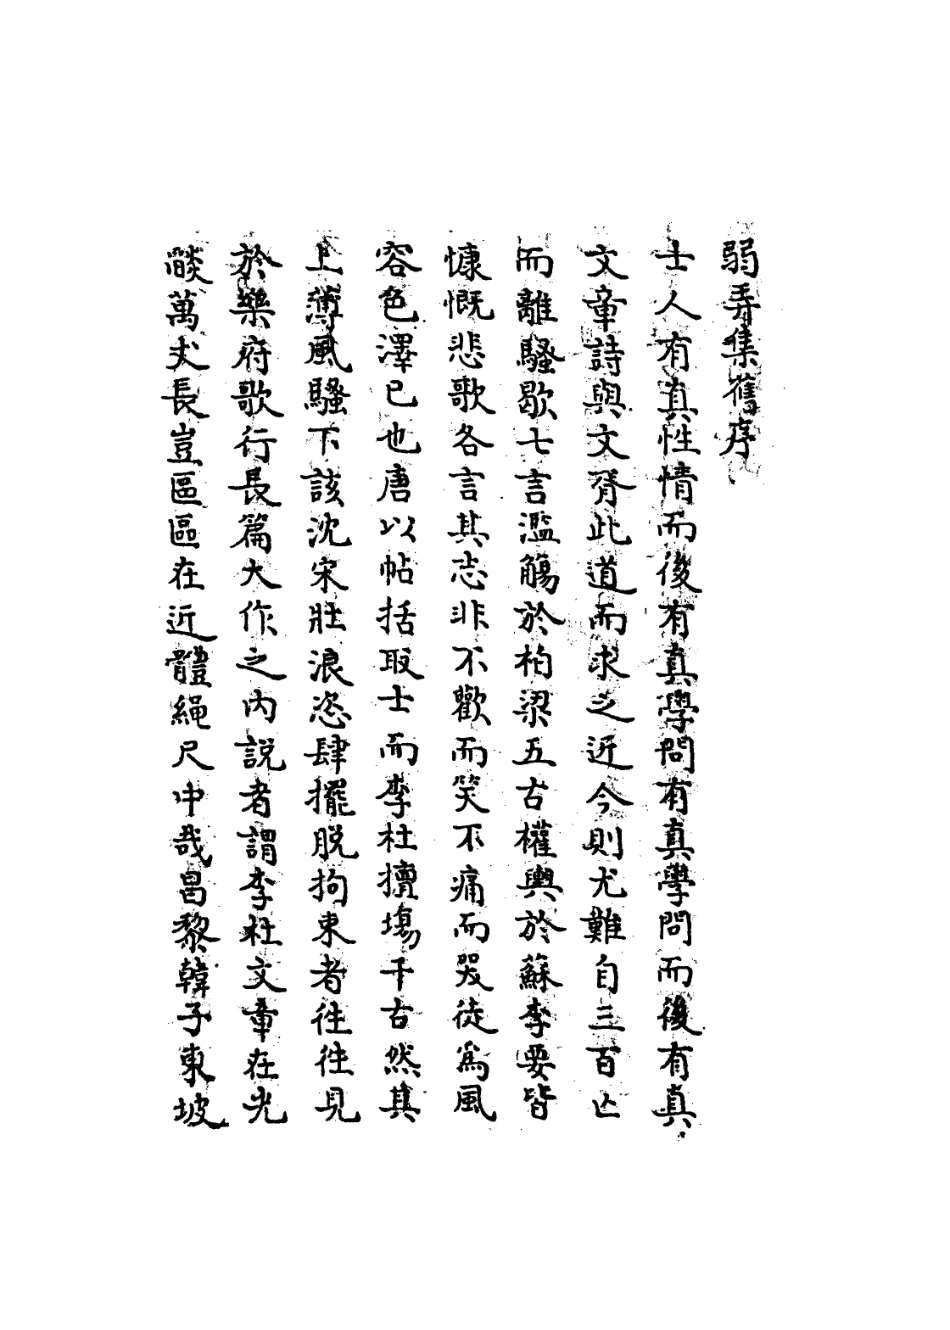 弱弄集舊序
士人有真性情而後有真學問有真學問而後有真
文章詩與文胥此道而求之近今則尤難自三百亡
而離騷歇七言濫觴於柏梁五古權輿於蘇李要皆
慷慨悲歌各言其志非不歡而笑不痛而哭徒爲風
容色澤已也唐以帖括取士而李杜擅塲千古然其
上薄風騷下該沈宋壯浪恣肆擺脱拘束者往徃見
於樂府歌行長篇大作之内説者謂李杜文章在光
燄萬丈長豈區區在近體繩尺中哉昌黎韓子東坡